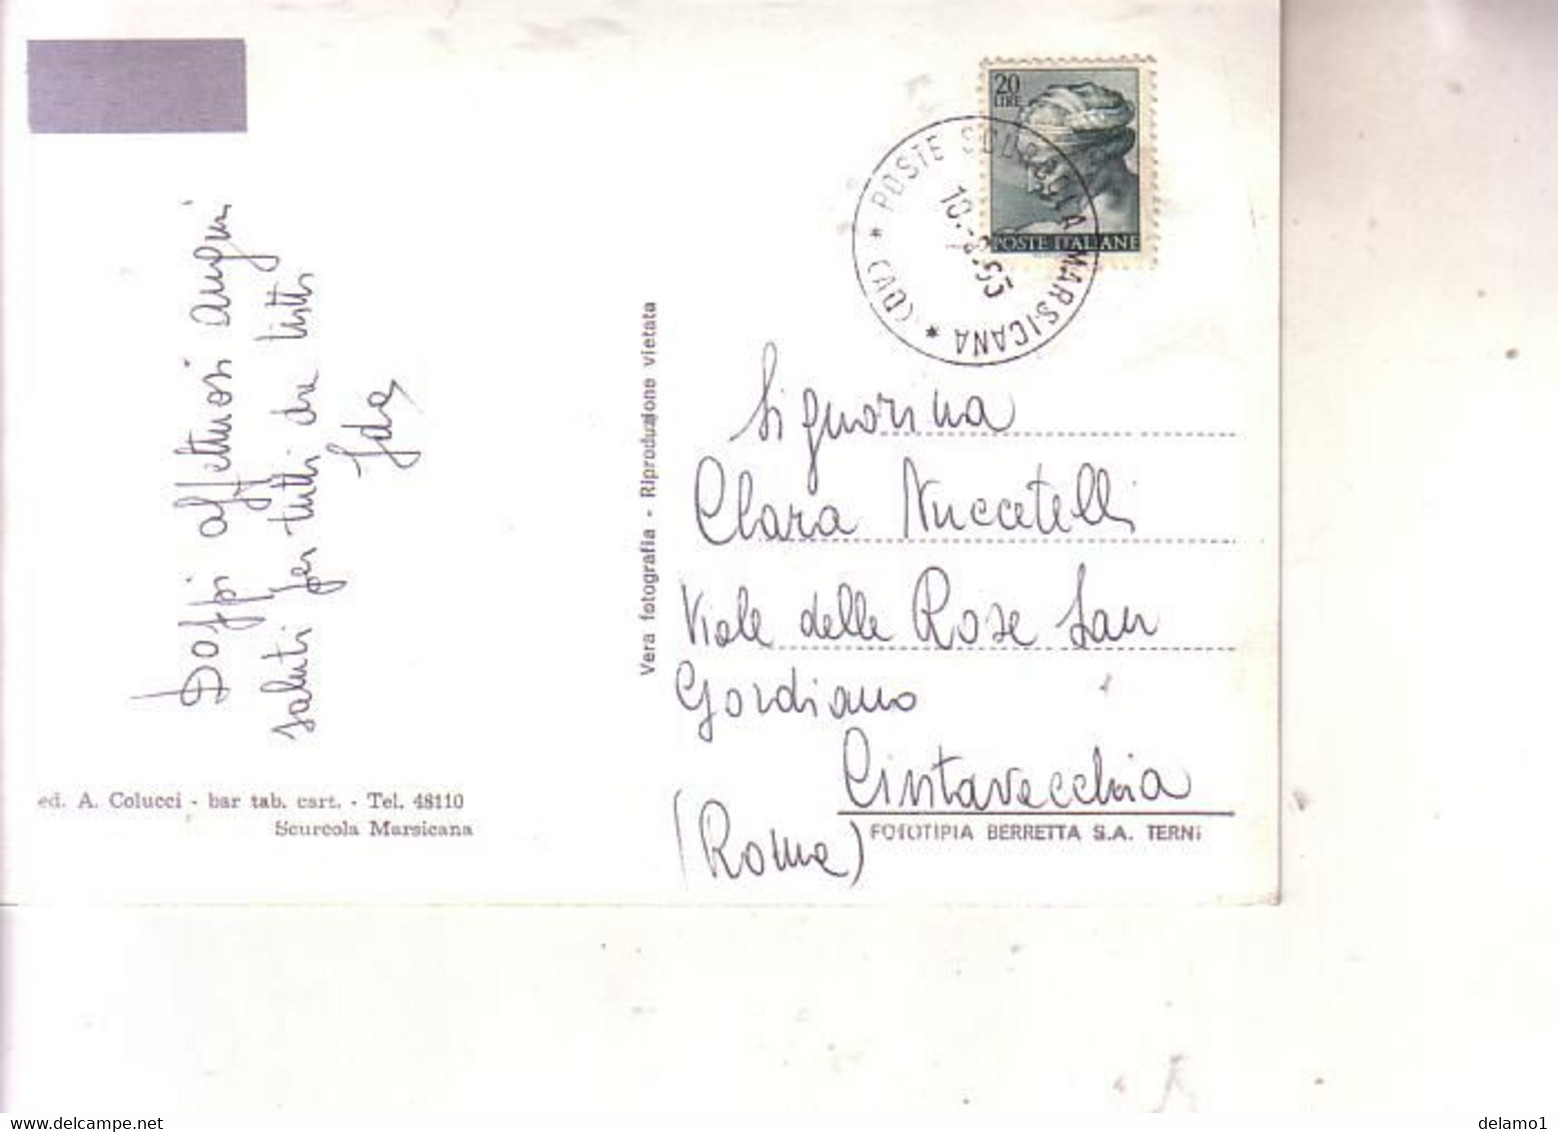 20
LIRE
POSTE ITALIANE
* POSTE SCURCOLA MARSICANA * (AQ)
Doppi affettuosi auguri
saluti per tutti da tutti
Ida
Vera fotografia - Riproduzione vietata
Signorina
Clara Nuccetelli
Viale delle Rose San
Gordiano
Civitavecchia
(Roma)
ed. A. Colucci - bar tab. cart. - Tel. 48110
Scurcola Marsicana
FOTOTIPIA BERRETTA S.A. TERNI
www.delcampe.net
delamo1